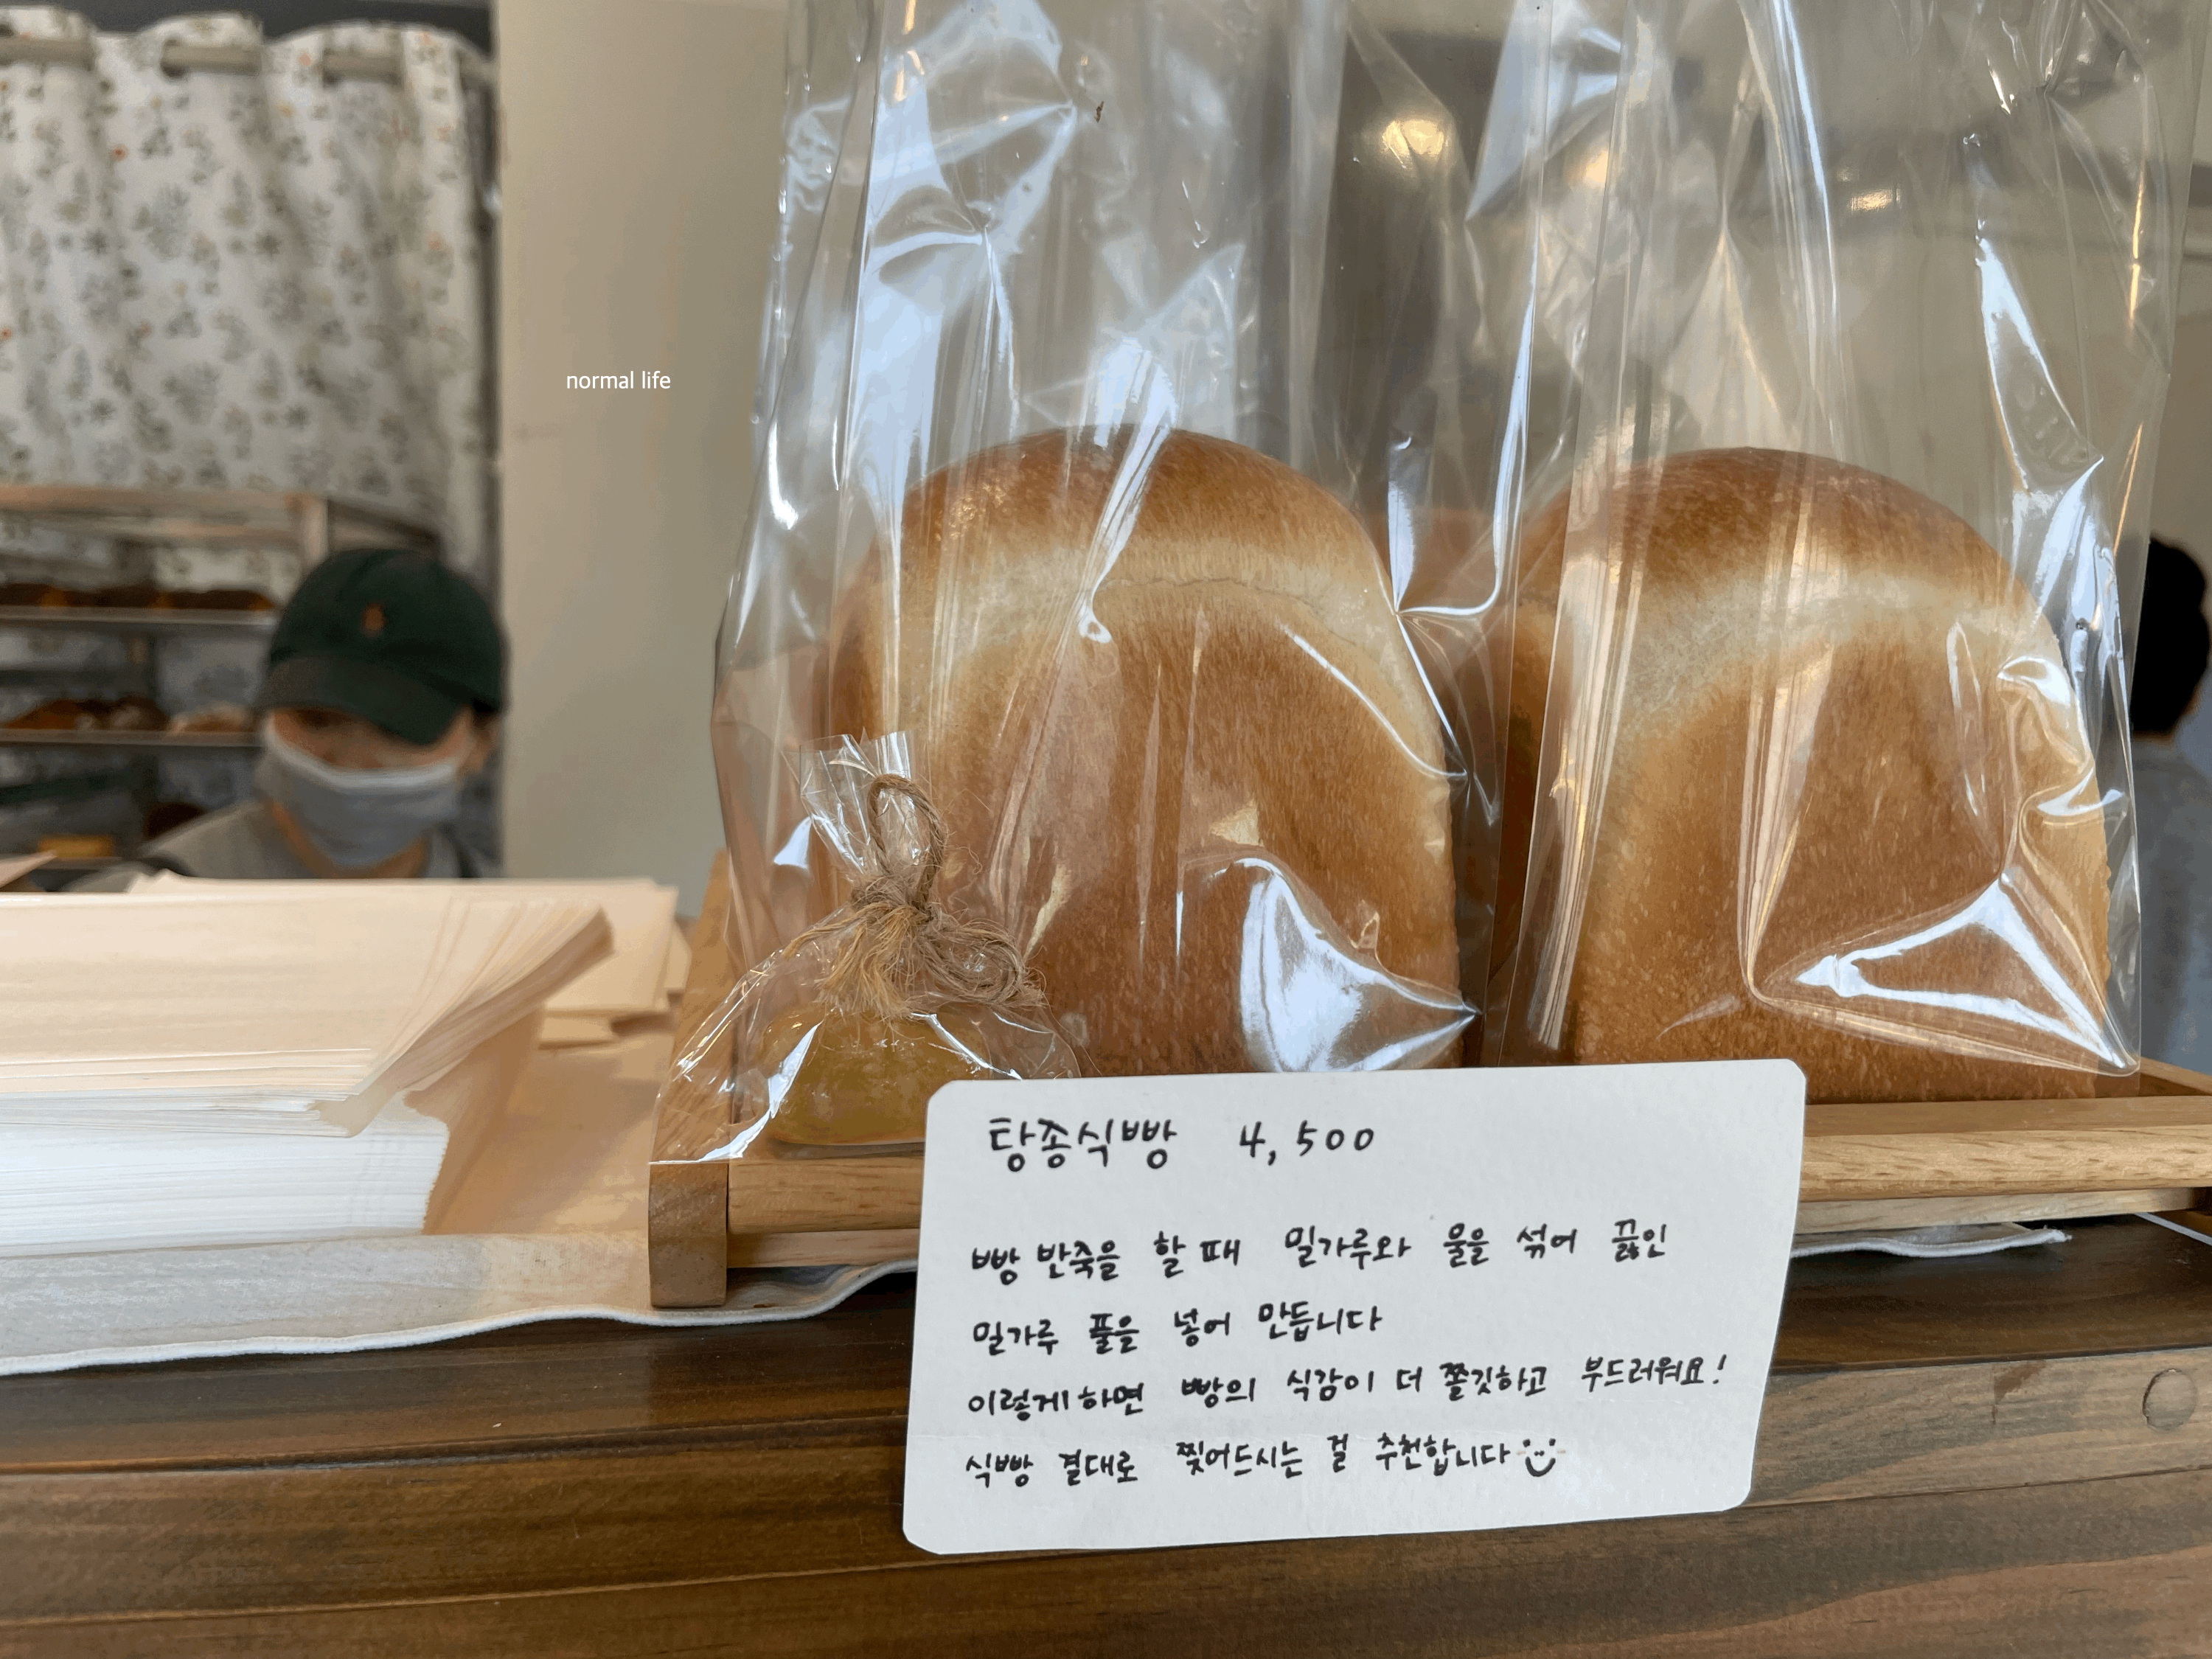 normal life
탕종식빵 4,500
빵 반죽을 할 때 밀가루와 물을 섞어 끓인
밀가루 풀을 넣어 만듭니다
이렇게하면 빵의 식감이 더 쫄깃하고 부드러워요!
식빵 결대로 찢어드시는 걸 추천합니다